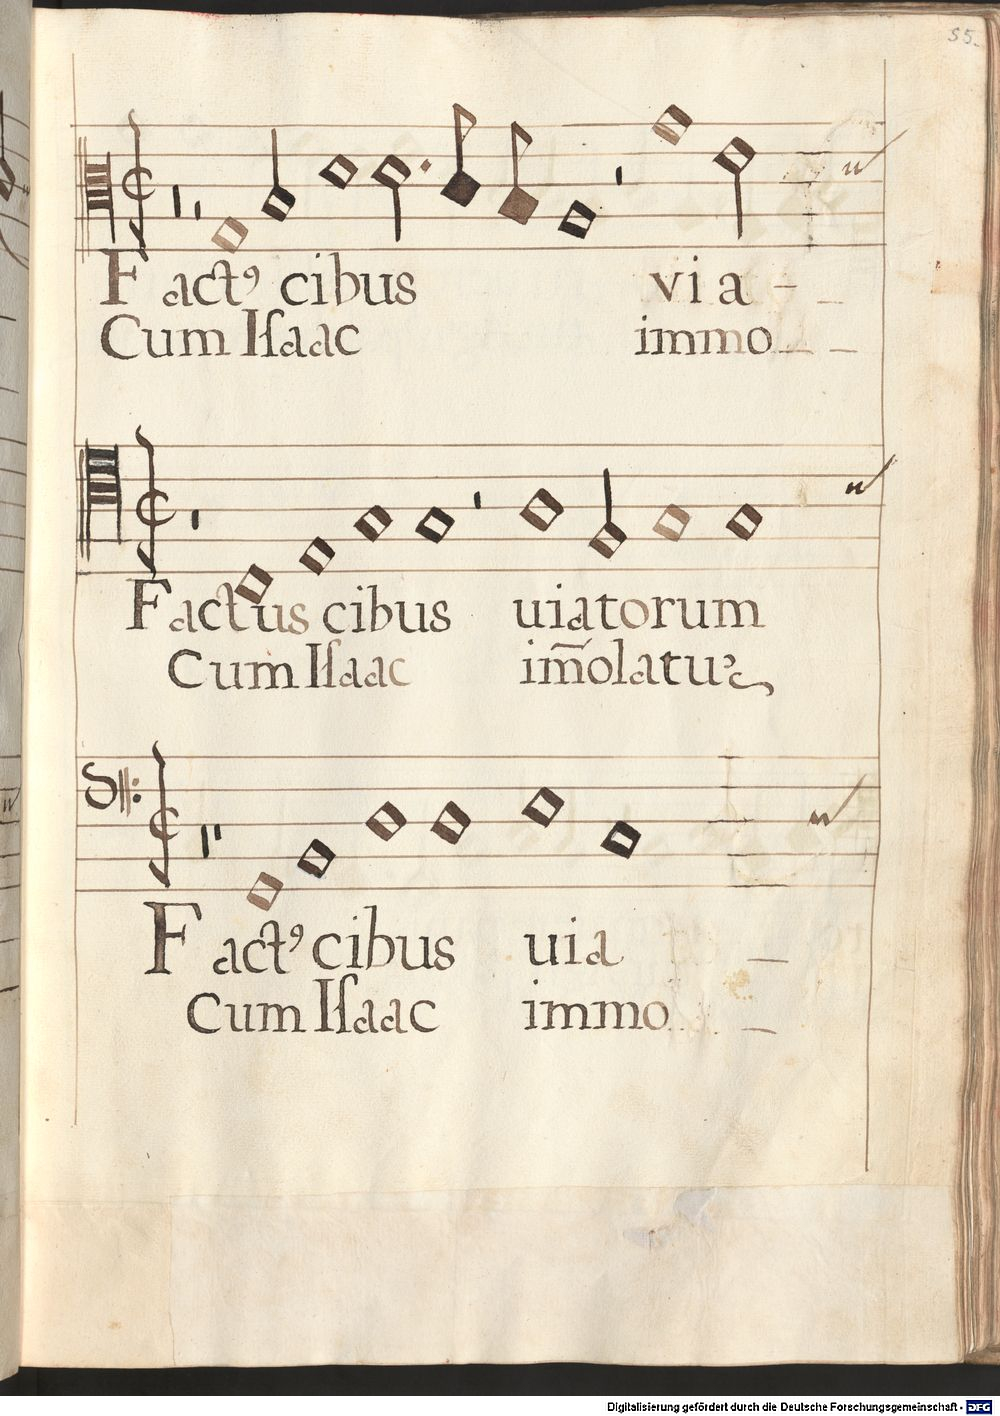 55.
Fact⁹ cibus via - -
Cum Iſaac immo - -
Factus cibus uiatorum
Cum Iſaac im̅olatus
Fact⁹ cibus uia -
Cum Iſaac immo -
Digitalisierung gefördert durch die Deutsche Forschungsgemeinschaft - DFG